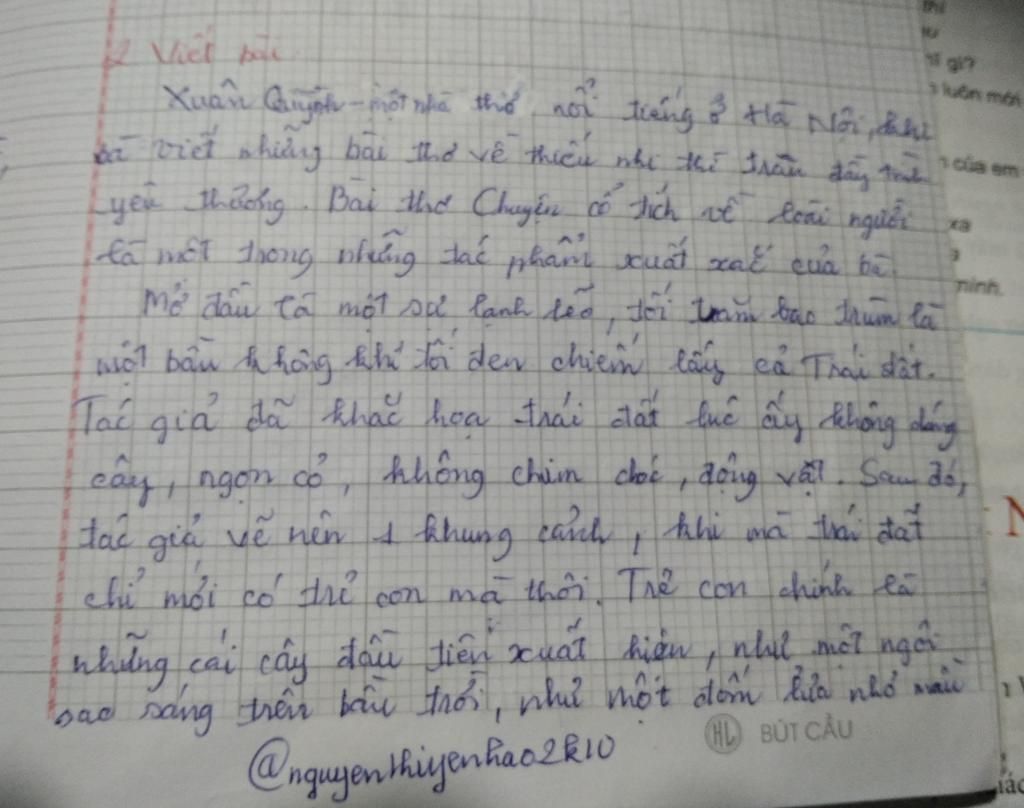 2 Viết bài
Xuân Quỳnh - một nhà thơ nổi tiếng ở Hà Nội, khi
bà viết những bài thơ về thiếu nhi thì tràn đầy tình
yêu thương. Bài thơ Chuyện cổ tích về loài người
là một trong những tác phẩm xuất xắc của bà
Mở đầu là một sự lạnh lẽo, tối tăm bao trùm là
một bầu không khí tối đen chiếm lấy cả Trái đất.
Tác giả đã khắc họa trái đất lúc ấy không dáng
cây, ngọn cỏ, không chim chóc, động vật. Sau đó,
tác giả vẽ nên 1 khung cảnh, khi mà trái đất
chỉ mới có trẻ con mà thôi. Trẻ con chính là
những cái cây đầu tiên xuất hiện, như một ngôi
sao sáng trên bầu trời, như một đốm lửa nhỏ màu
HL BÚT CÂU
@nguyenthiyenhao2k10
gì?
luôn mới
của em
xa
mình
N